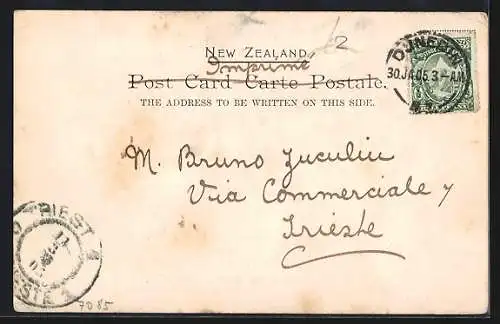 2
NEW ZEALAND
Imprimé
Post Card Carte Postale.
THE ADDRESS TO BE WRITTEN ON THIS SIDE.
DUNEDIN
30.JA.05.3-AM
M. Bruno Zuculin
Via Commerciale 7
Trieste
TRIEST
TRIESTE 1
7085